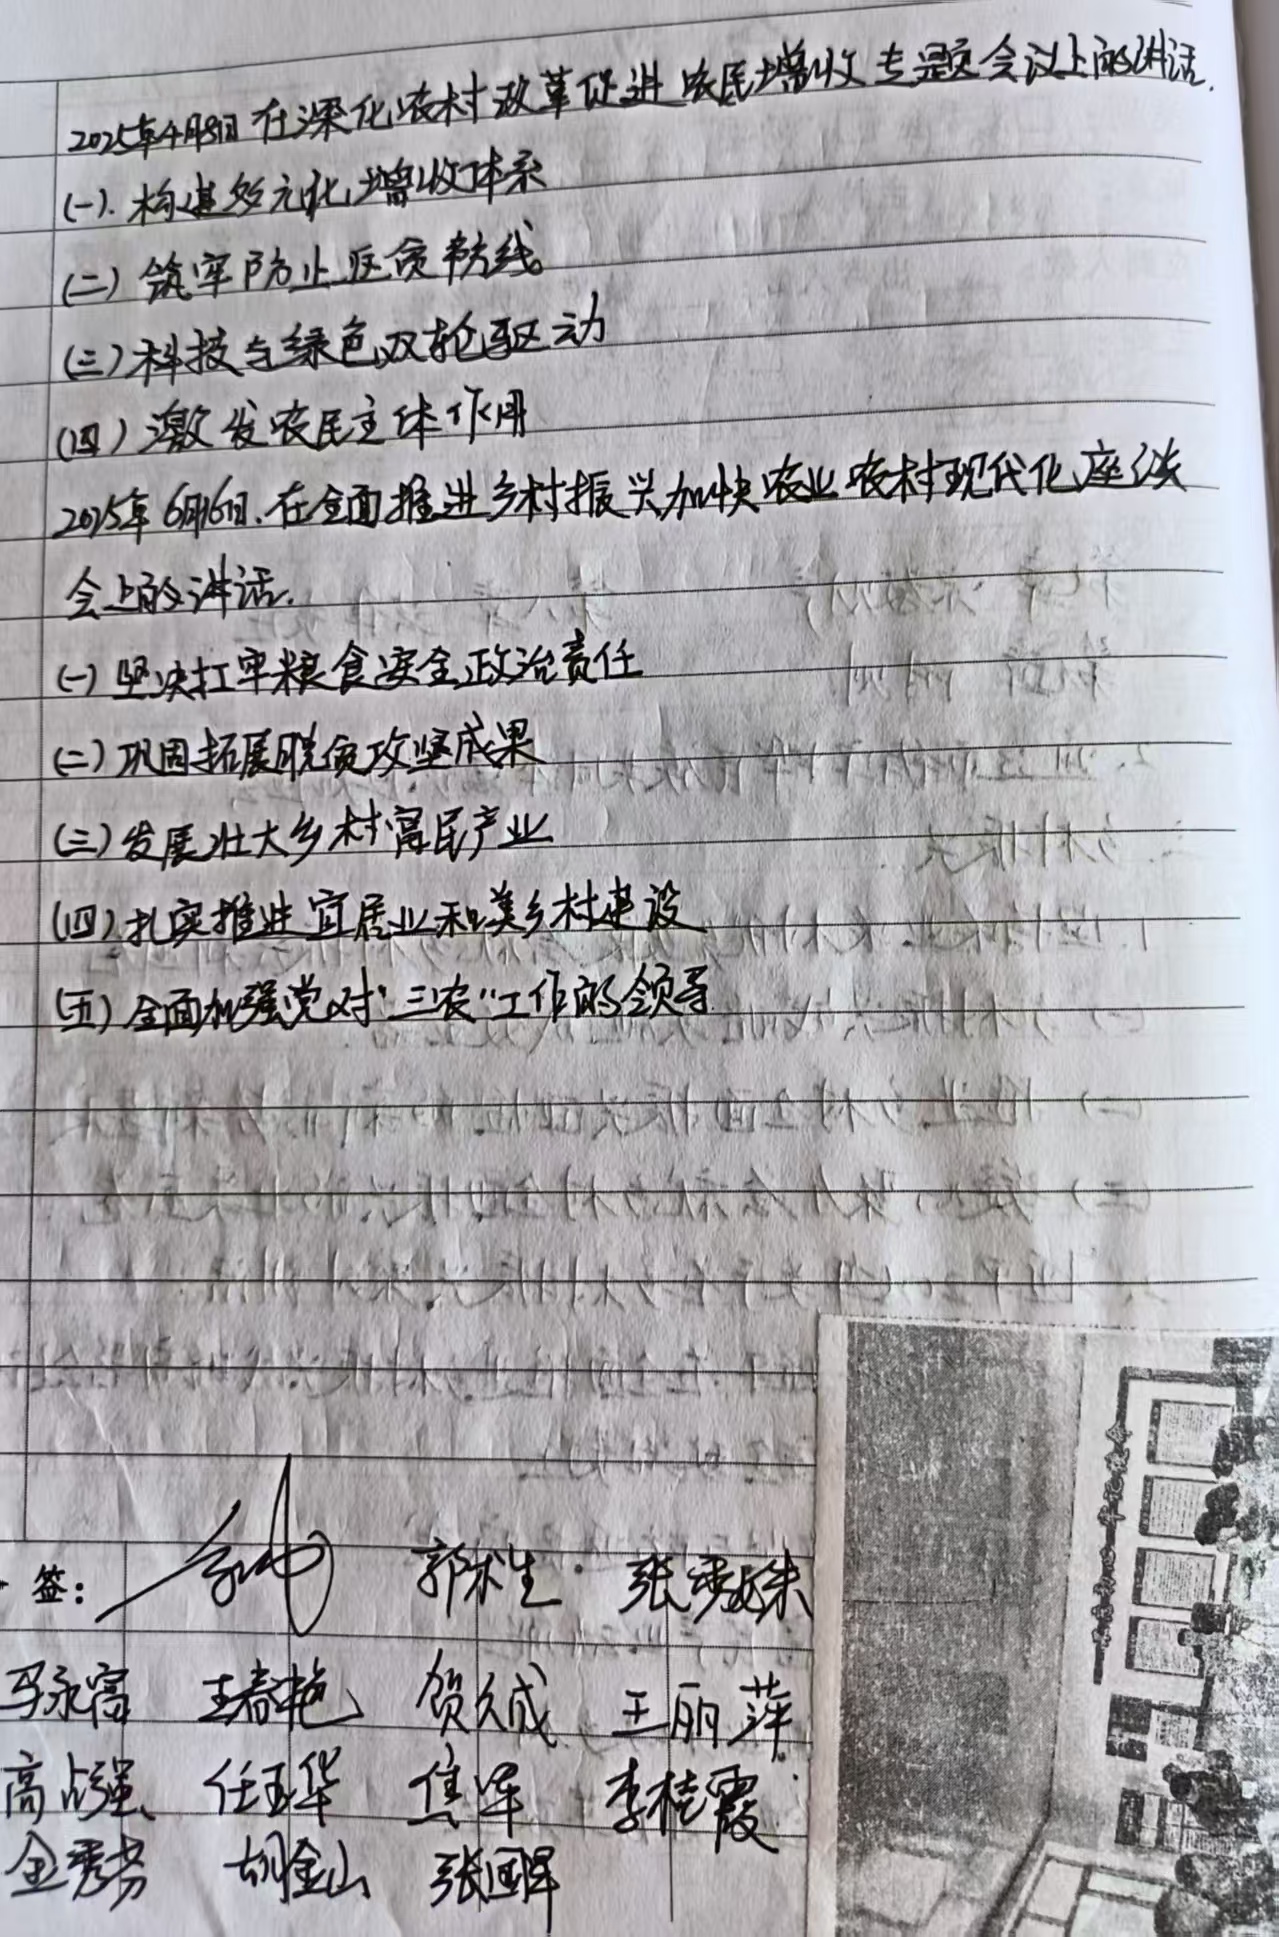 2025年4月8日在深化农村改革促进农民增收专题会议上的讲话.
(一).构建多元化增收体系
(二)筑牢防止返贫防线。
(三)科技与绿色双轮驱动
(四)激发农民主体作用
2025年6月16日.在全面推进乡村振兴加快农业农村现代化座谈
会上的讲话.
(一)坚决扛牢粮食安全政治责任
(二)巩固拓展脱贫攻坚成果
(三)发展壮大乡村富民产业
(四)扎实推进宜居业和美乡村建设
(五)全面加强党对"三农"工作的领导
签: 张秀妹
马永富 王春艳 贺久成 王丽萍
高占强 任玉华 焦军 李桂霞
金秀芬 胡金山 张国军